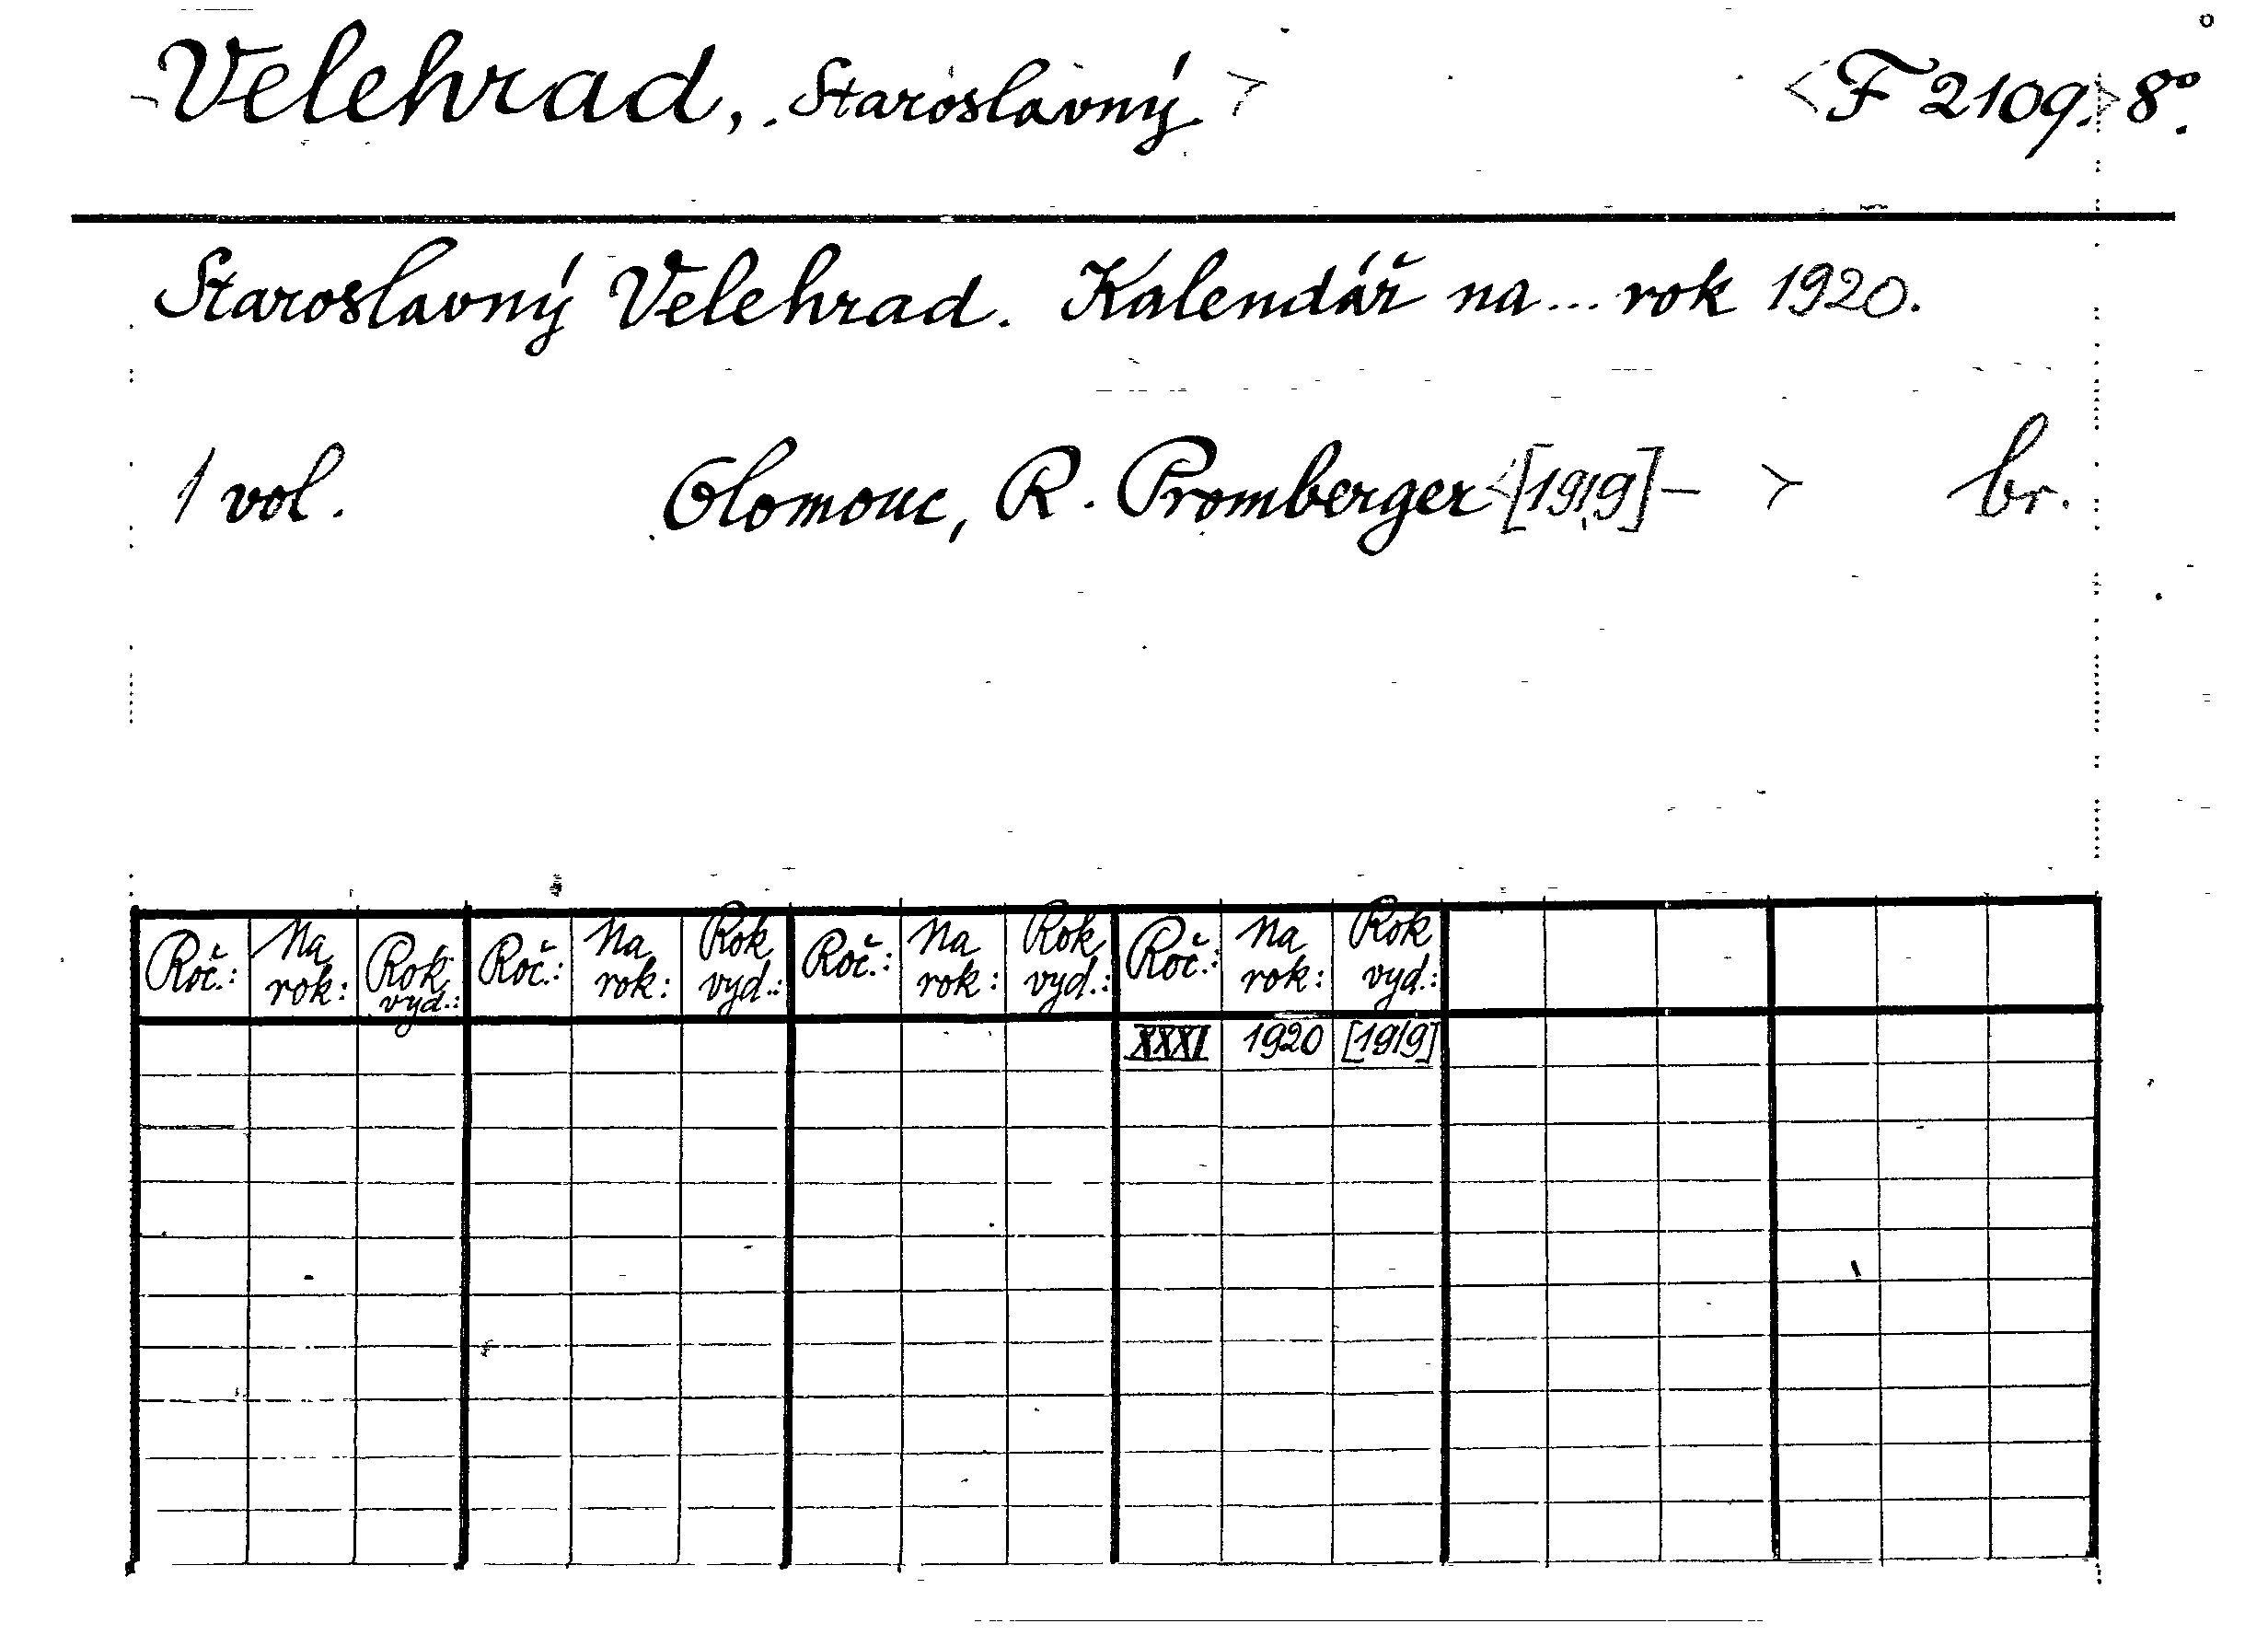 Velehrad, Staroslavný. > <F 2109.> 8°.
Staroslavný Velehrad. Kalendář na ... rok 1920.
1 vol. Olomouc, R. Promberger <[1919]— > br.
Roč.: Na rok: Rok vyd.: Roč.: Na rok: Rok vyd.: Roč.: Na rok: Rok vyd.: Roč.: Na rok: Rok vyd.:
XXXI 1920 [1919]